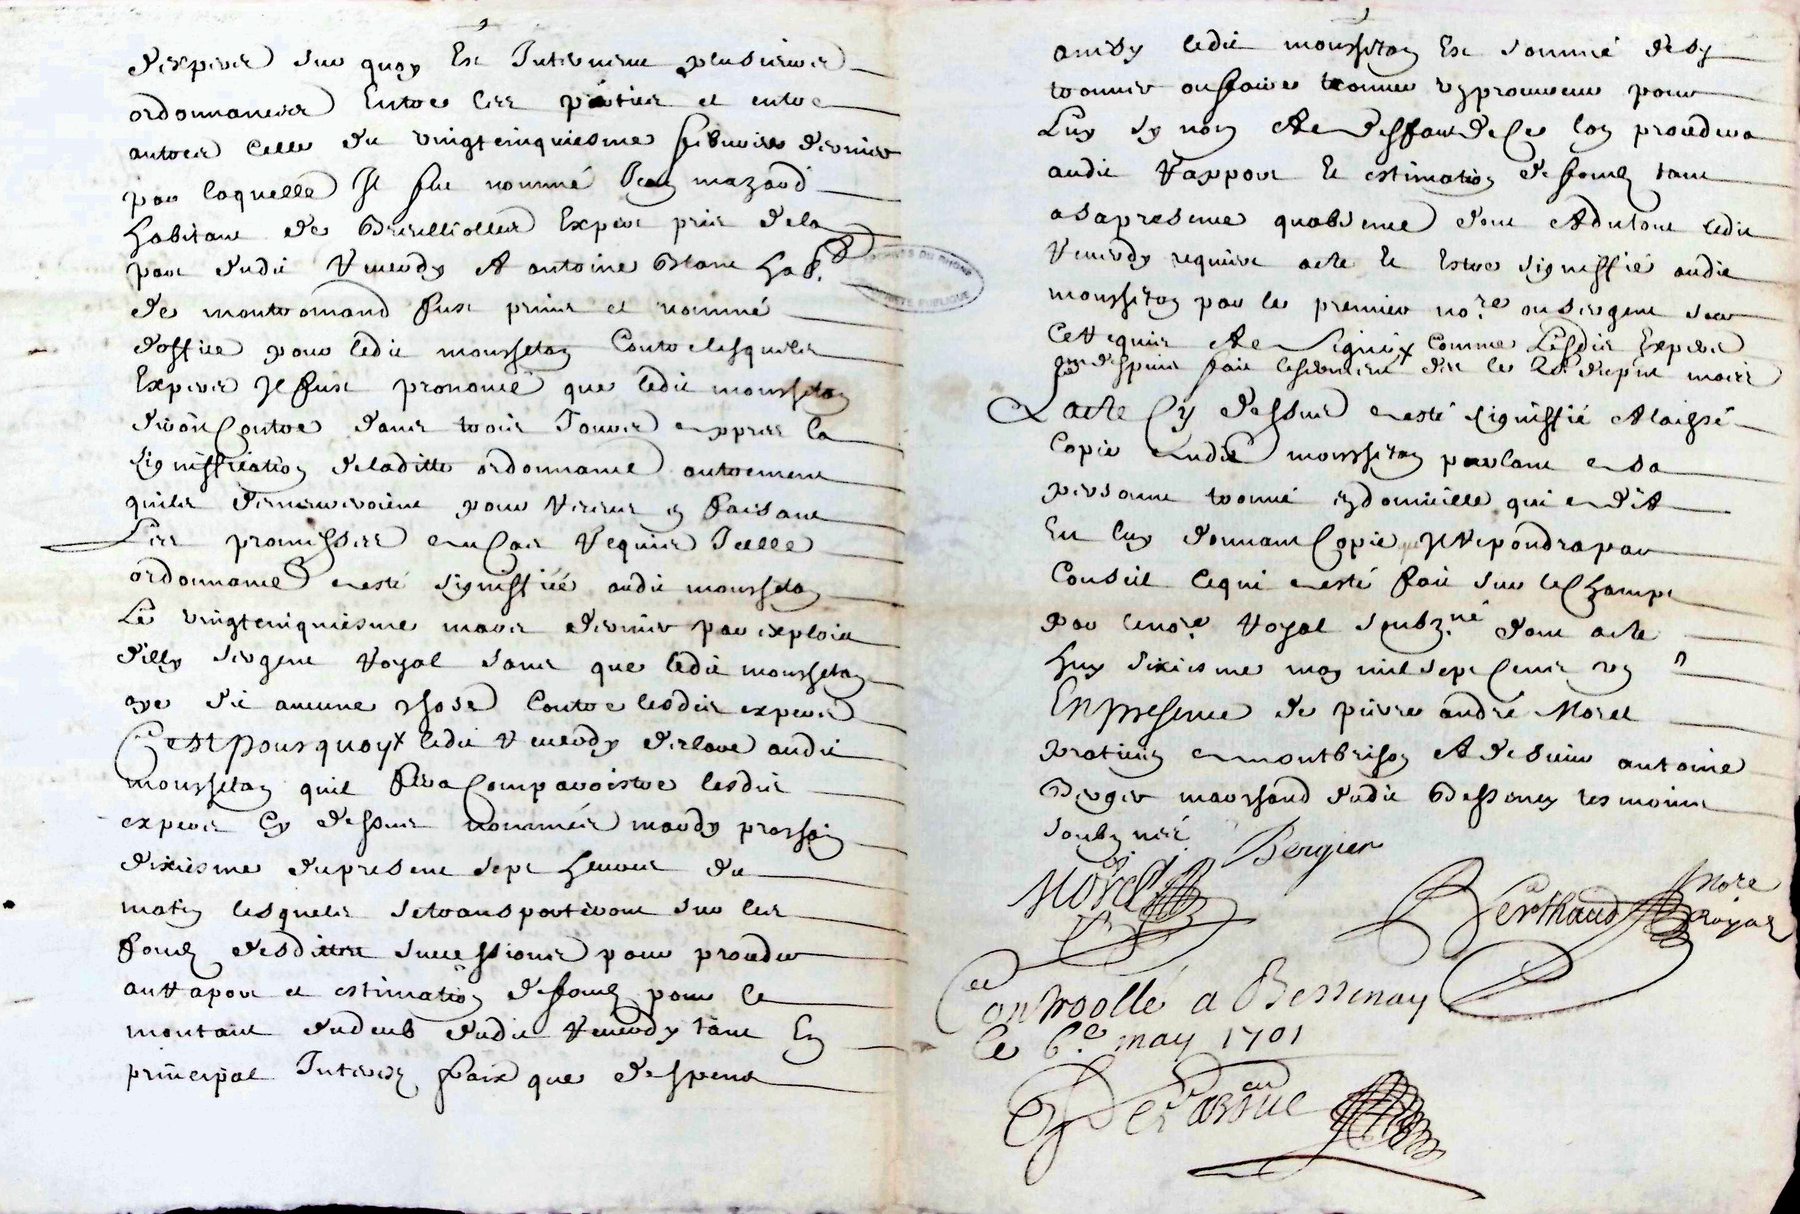 d'expers sur quoy Est Intervenu plusieurs
ordonnances Entre les parties et entre
autres Celle du vingtcinquiesme febvrier dernier
par laquelle Il fut nommé Jean mazard
habitant de Expert pris de la
part dudit Vererdy & antoine Blanc hab.
de montromand fust prins et nommé
doffice pour ledit mousseton Contre lesquels
Expers Il fust prononcé que ledit mousseton
diroit Contre dans trois Jours apres la
signiffication de laditte ordonnance autrement
quils demeureroient pour receus en faisant
Les promesses en cas requis Icelle
ordonnance a esté signiffiée audit mousseton
Le vingtcinquiesme mars dernier par exploit
dilly sergent Royal sans que ledit mousseton
aye dit aucune chose Contre lesdits expers
C'est pourquoy ledit declare audit
mousseton quil fera Comparoistre lesdits
expers Cy dessus nommés mardy prochain
dixiesme du present sept heures du
matin lesquels se transporteront sur les
fonds desdittes successions pour proceder
au rapport et estimation de fonds pour le
montant du deub dudit tant En
principal Interestz fraix que despens
ainsy ledit mousseton Est sommé de sy
trouver ou faire trouver sy prouveue pour
Luy sy non & a deffaut de ce lon procedera
audit rapport & estimation de fonds tant
a sa presence quabsence dont & du tout ledit
requiert acte & Estre signiffié audit
mousseton par le premier no.re ou sergent sur
ce requis & a signé comme Lesdits Expers
ont despuis fait le serment des le 20 dapvril mois
L'acte Cy dessus a esté signiffié & laissé
Copie audit mousseton parlant a sa
personne trouvé en domicille qui a dit
En luy donnant Copie Il repondra par
Conseil Ce qui a esté fait sur le Champ
par le no.re Royal soubz.né dont acte
Huy sixiesme may mil sept Cent un
En presence de pierre andré Morel
praticien a montbrison & de sieur antoine
Berger marchand dudit Bessenay tesmoins
soubz.nés
Bergier
Morel
Berthaud no.re royal
Controollé a Bessenay
le 6.e may 1701